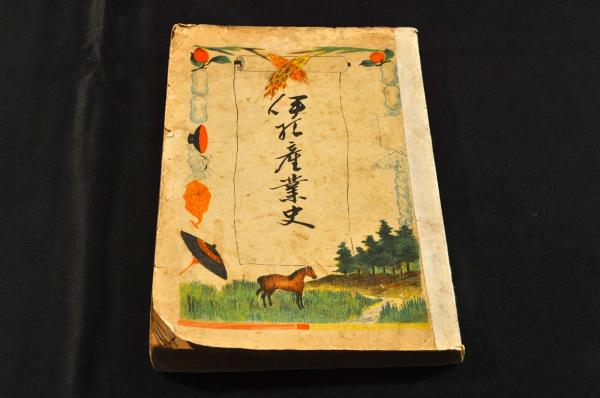 伊那產業史